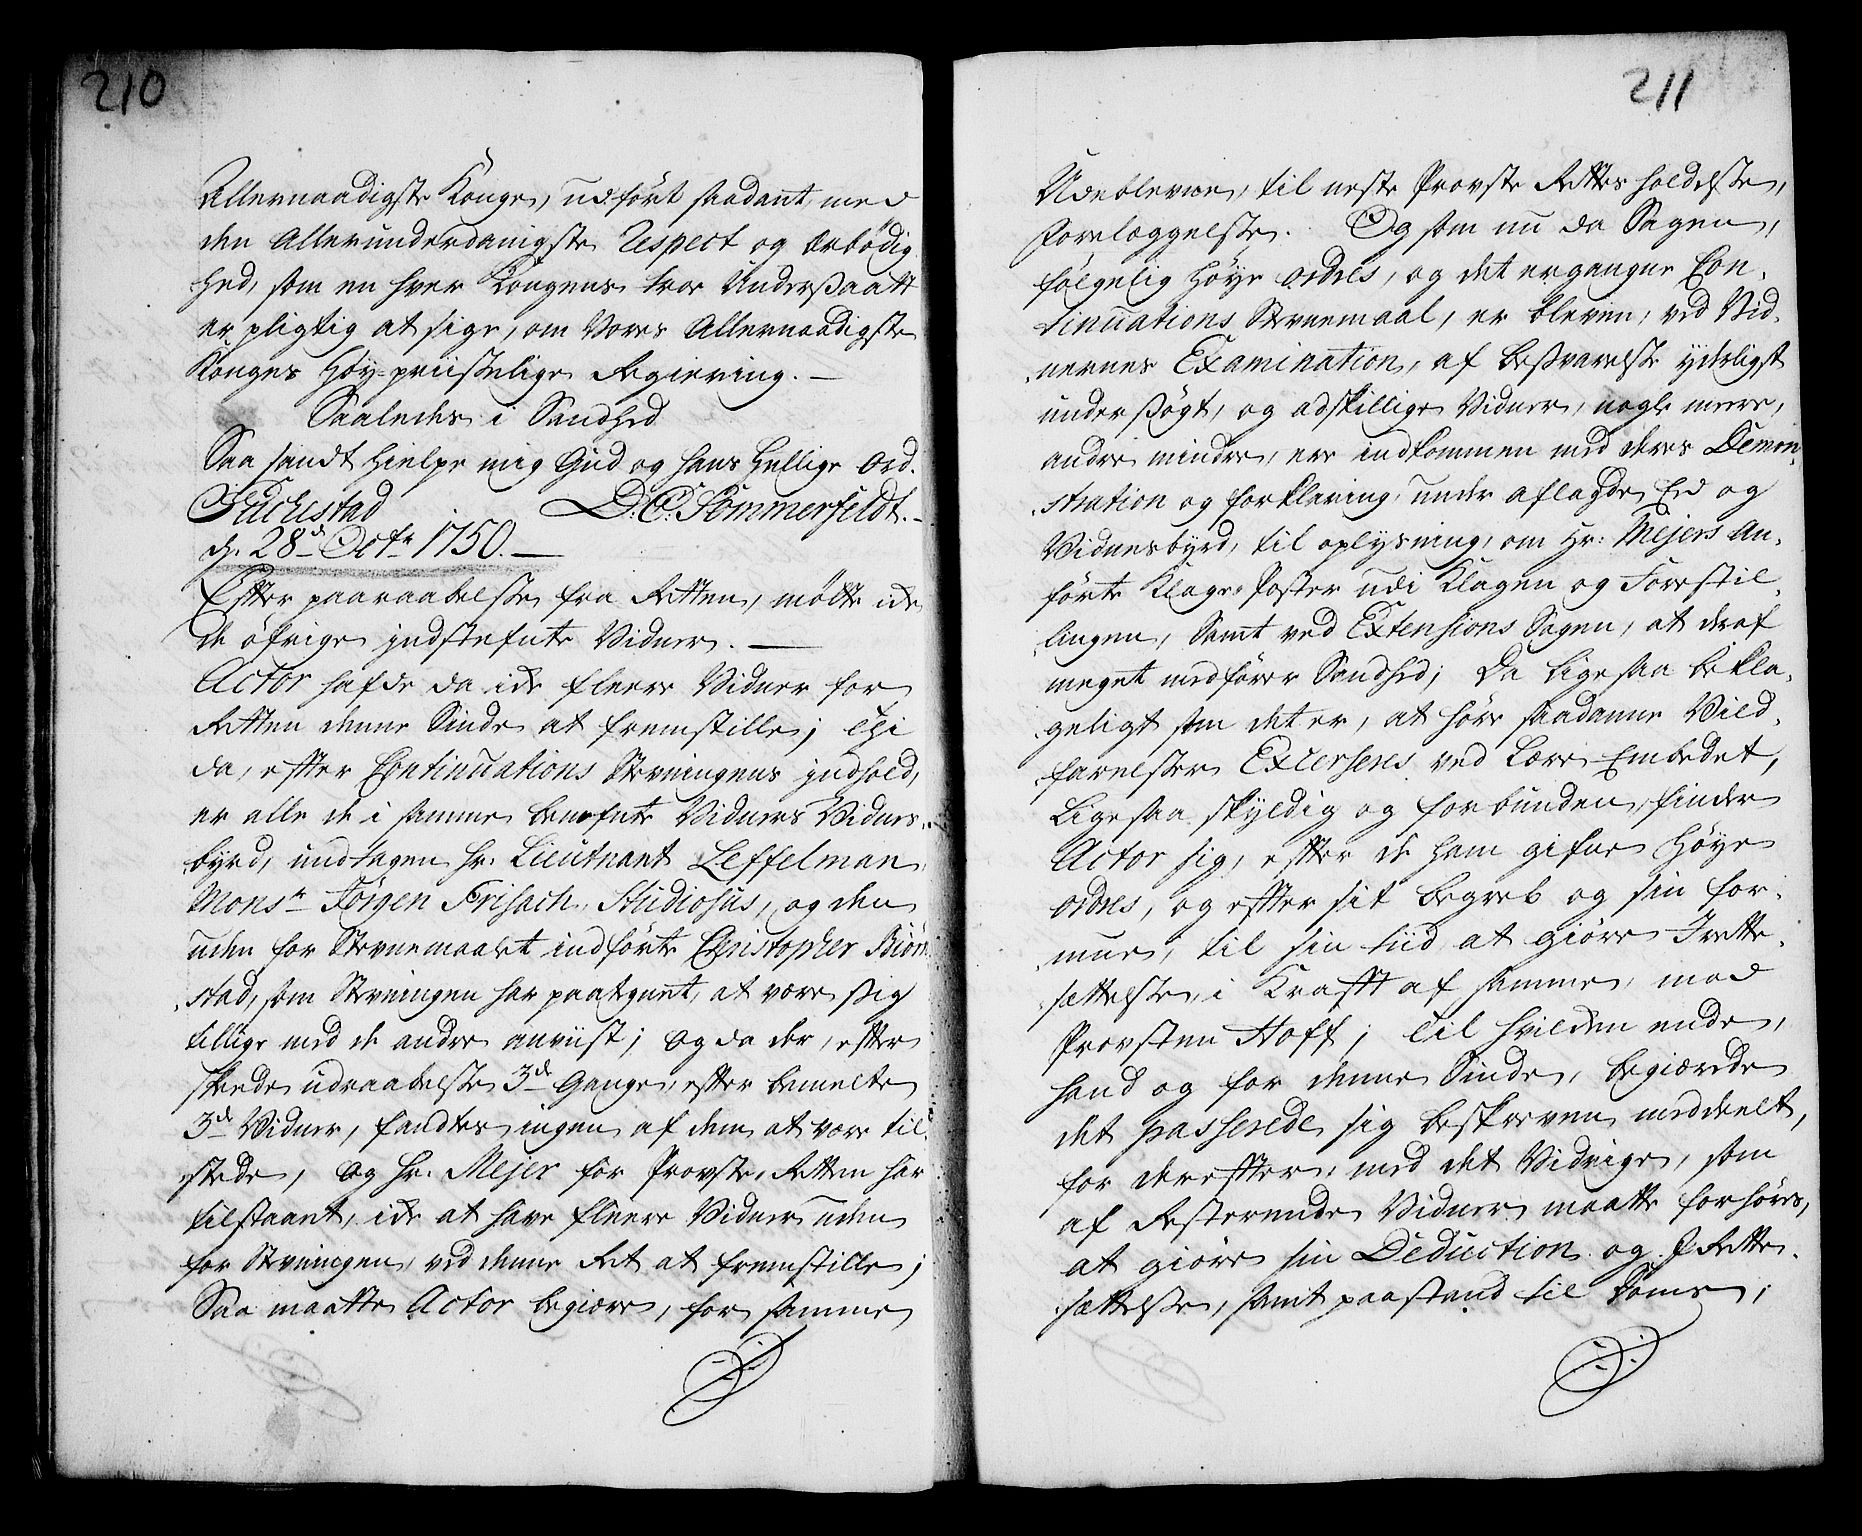 210
Allernaadigste Konge, udført saadant med
den Allerunderdanigste Respect og ærbødig
hed, som en hver Kongens troe Undersaatt
er pligtig at sige, om Vores Allernaadigste
Konges Høy-priiselige Regiering. —
Saaledes i Sandhed
Saa sandt hielpe mig Gud og hans Hellige Ord.
Tuchestad D. C. Sommerfeldt. —
d. 28de Octr 1750. —
Efter paaraabelse fra Retten, mötte ide
de öfrige indstefnte Vidner. —
Actor hafde da ide fleere Vidner for
Retten denne Sinde at fremstille; thi
da, efter Continuations Stevningens indhold,
er alle de i samme benefnte Vidners Vidnes-
byrd, undtagen Hr. Lieutnant Leffelman
Monsr Jörgen Frisach, Studiosus, og den
uden for Stevnemaalet indförte Christopher Biörn
stad, som Stevningen har paategnet, at være sig
tillige med de andre anviist; og da der, efter
skeede udraabelse 3de Gange, efter bemelte
3de Vidner, fandtes ingen af dem at være til
stede, og Hr. Mejer for Provste-Retten har
tilstaaet, ide at have fleere Vidner uden
for Stevningen, ved denne Ret at fremstille;
Saa maatte Actor begiære, for samme
211
Udeblevne, til neste Provste Rettes holdelse,
forelæggelse. Og som nu da Sagen,
fölgelig höye ordres, og det ergangne Con-
tinuations Stevnemaal, er bleven, ved Vid-
nernes Examination, af besvarelse yderligst
undersögt, og adskillige Vidner, nogle meere,
andre mindre, ere indkommen med deres Demon-
stration og forklaring, under aflagde Eed og
Vidnesbyrd, til oplysning, om Hr: Mejers An-
förte Klage-Poster udi Klagen og Forestil-
lingen, Samt ved Extensions Sagen, at deraf
meget medförer Sandhed; Da ligesaa bekla-
geligt som det er, at höre saadanne Vild-
farelser Excerseres ved Lære Embedet,
Ligesaa skyldig og forbunden finder
Actor sig, efter de ham gifne Höye
ordres, og efter sit begreb og sin for-
mue, til sin tiid at giöre Irette-
sættelse, i Krafft af samme, mod
Provsten Hoff; til hvilken ende,
hand og for denne Sinde, begiærede
det passerede sig beskreven meddeelt,
for derefter, med det Vidrige, som
af Resterende Vidner maatte forhöres,
at giöre sin Deduction og I Rette-
sættelse, samt paastand til doms;